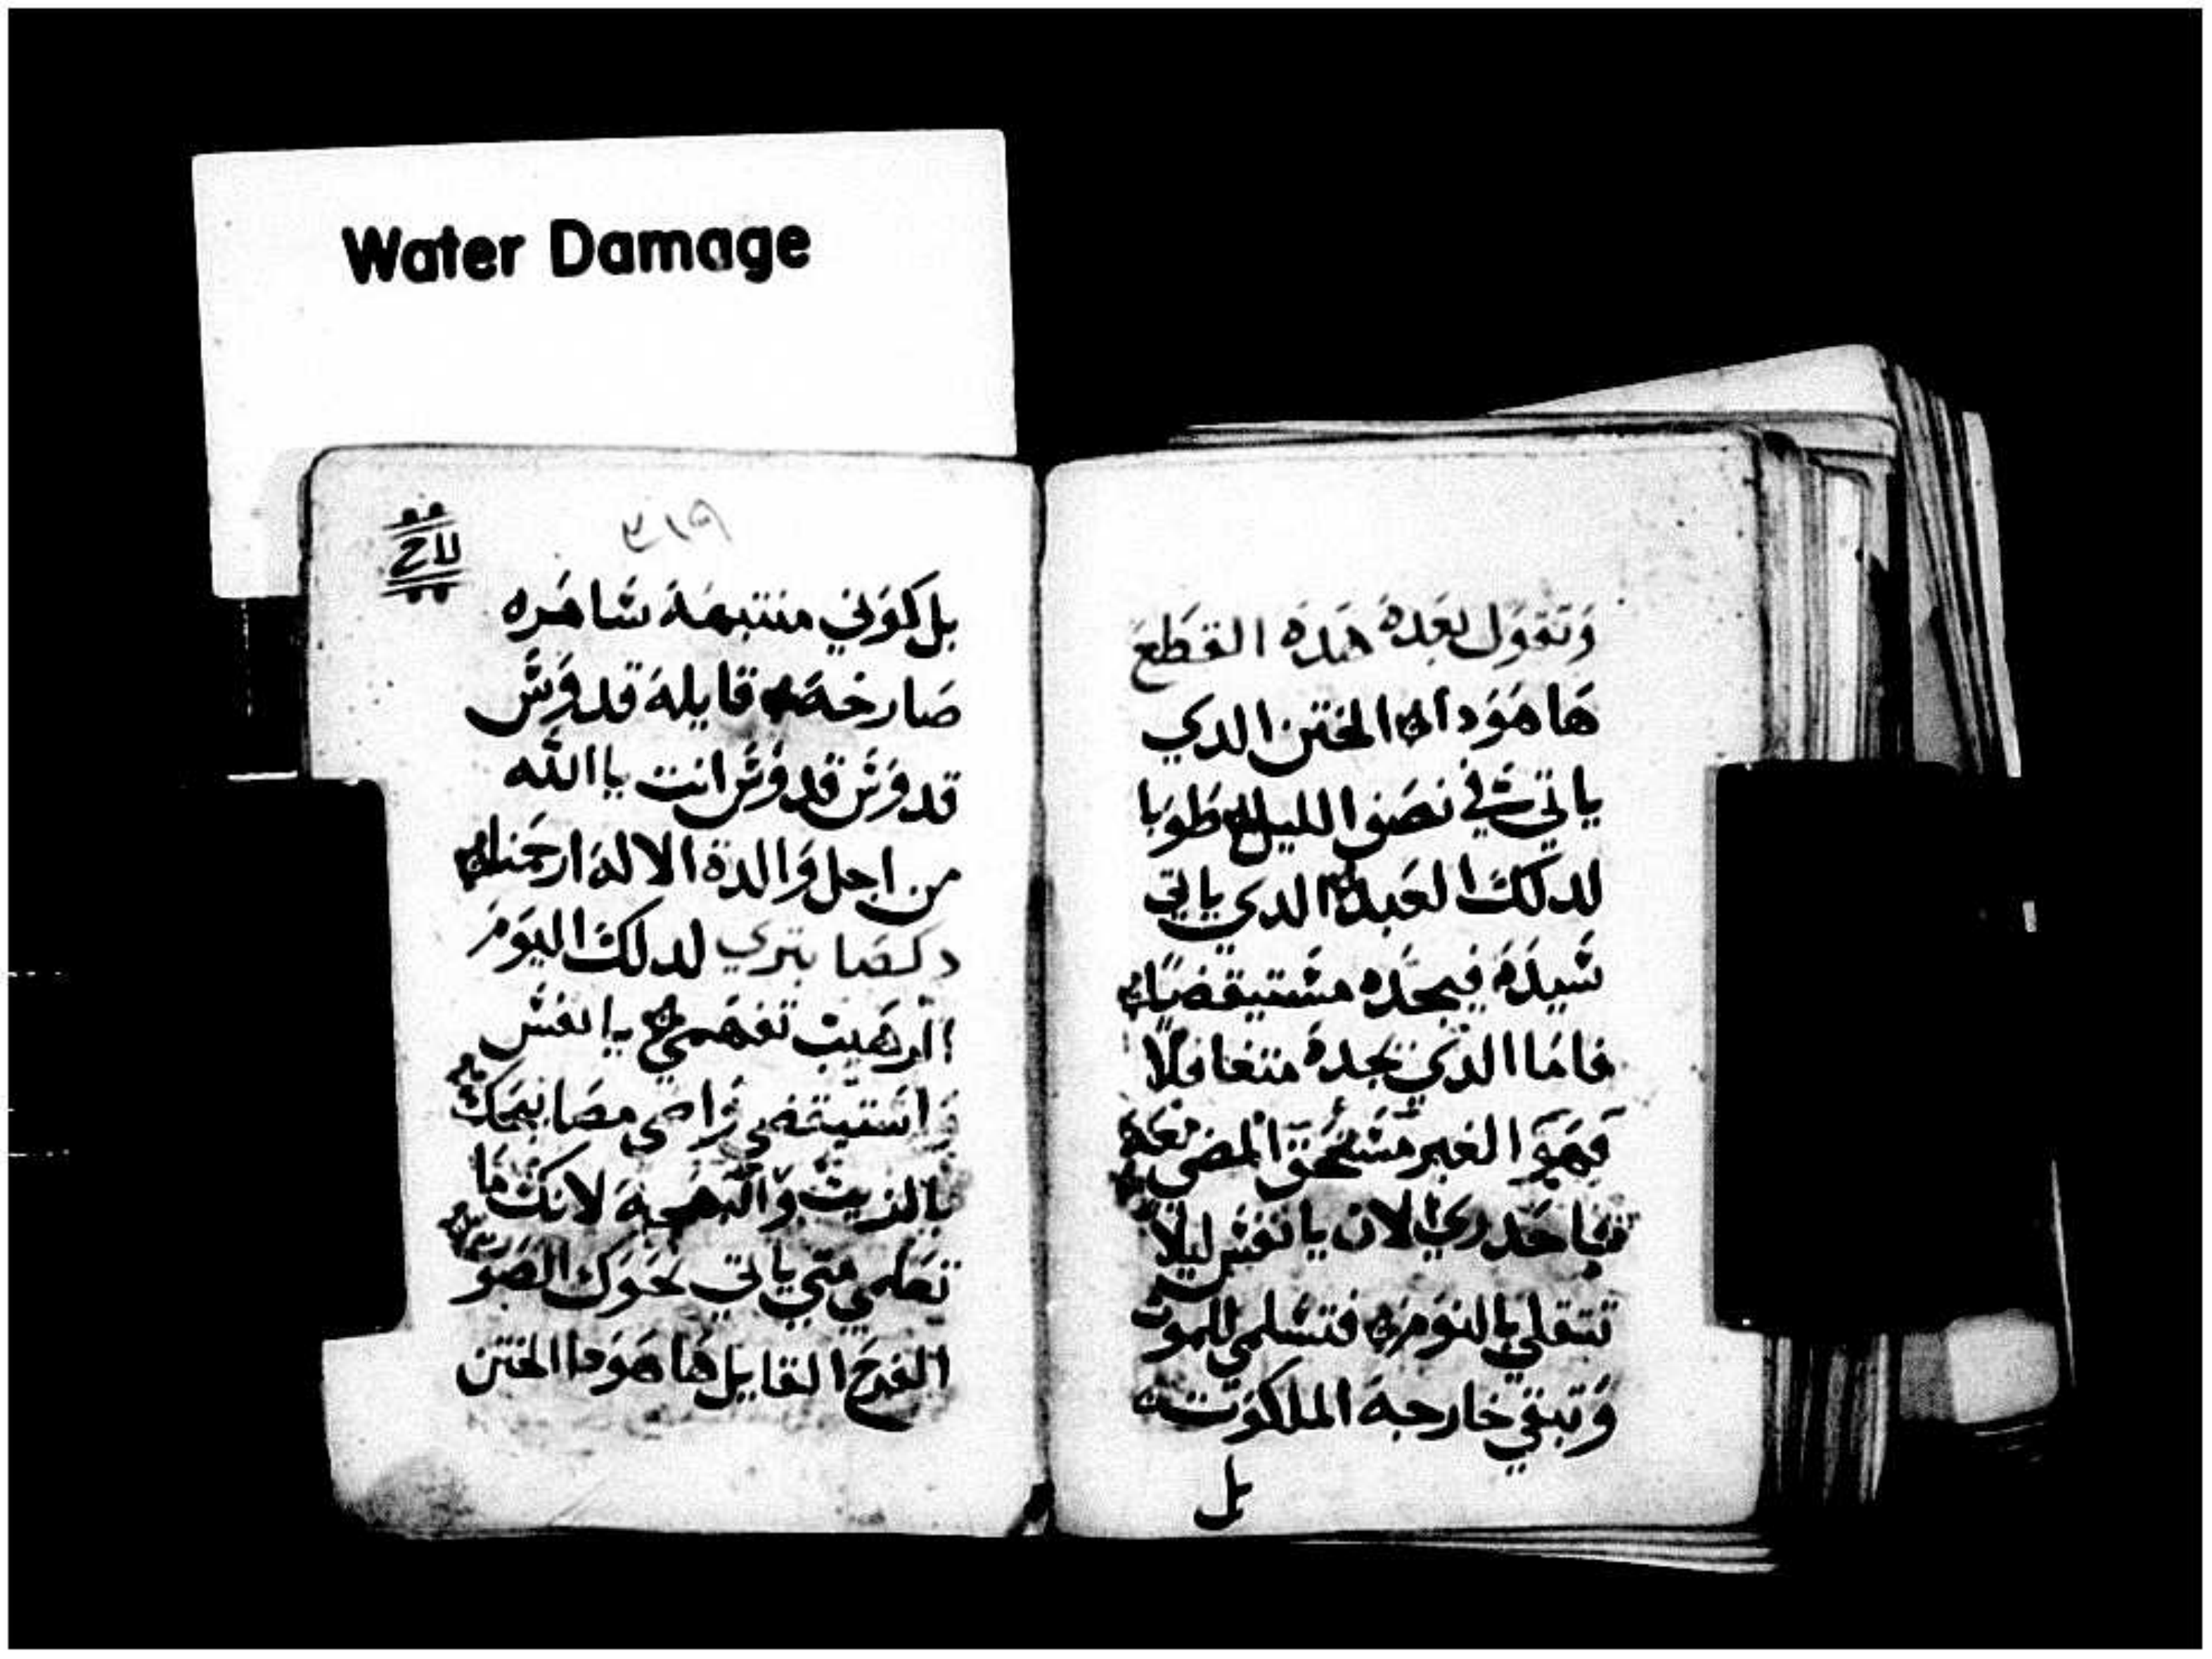 Water Damage
وَتقوَل بعَدهَ هَدهَ القطَع
هَا هَوَدا الختن الدي
ياتي في نصَف الليل طوَبا
لدلكَ العَبد الدي ياتي
سَيدَهَ فيجَده مسَتيقضاً
فاما الدَي يجدهَ متغافلاً
فهَوَ الغير مسَتحَق المضي معَه
فاحَدري الان يا نفسَ ليلا
تتقلي بالنوَم فتسَلمي للموت
وَتبقي خارجهَ الملكوَت
بل
٣١٩
بل كوَني منتبهَهَ سَاهَره
صَارخهَ قايلهَ قدوَسَ
قدوَسَ قدوَسَ انت يا الله
من اجل وَالدة الالهَ ارحمَنا
دكصَا بتري لدلكَ اليوَمَ
الرهَيب تفهَمي يا نفسَ
وَاسَتيقضي وَاضي مصَابيحَك
بالزيت وَالبهَجهَ لانكَ مَا
تعَلمي متي ياتي نحَوَك الصَوت
الفرحَ القايل هَا هَوَدا الختن